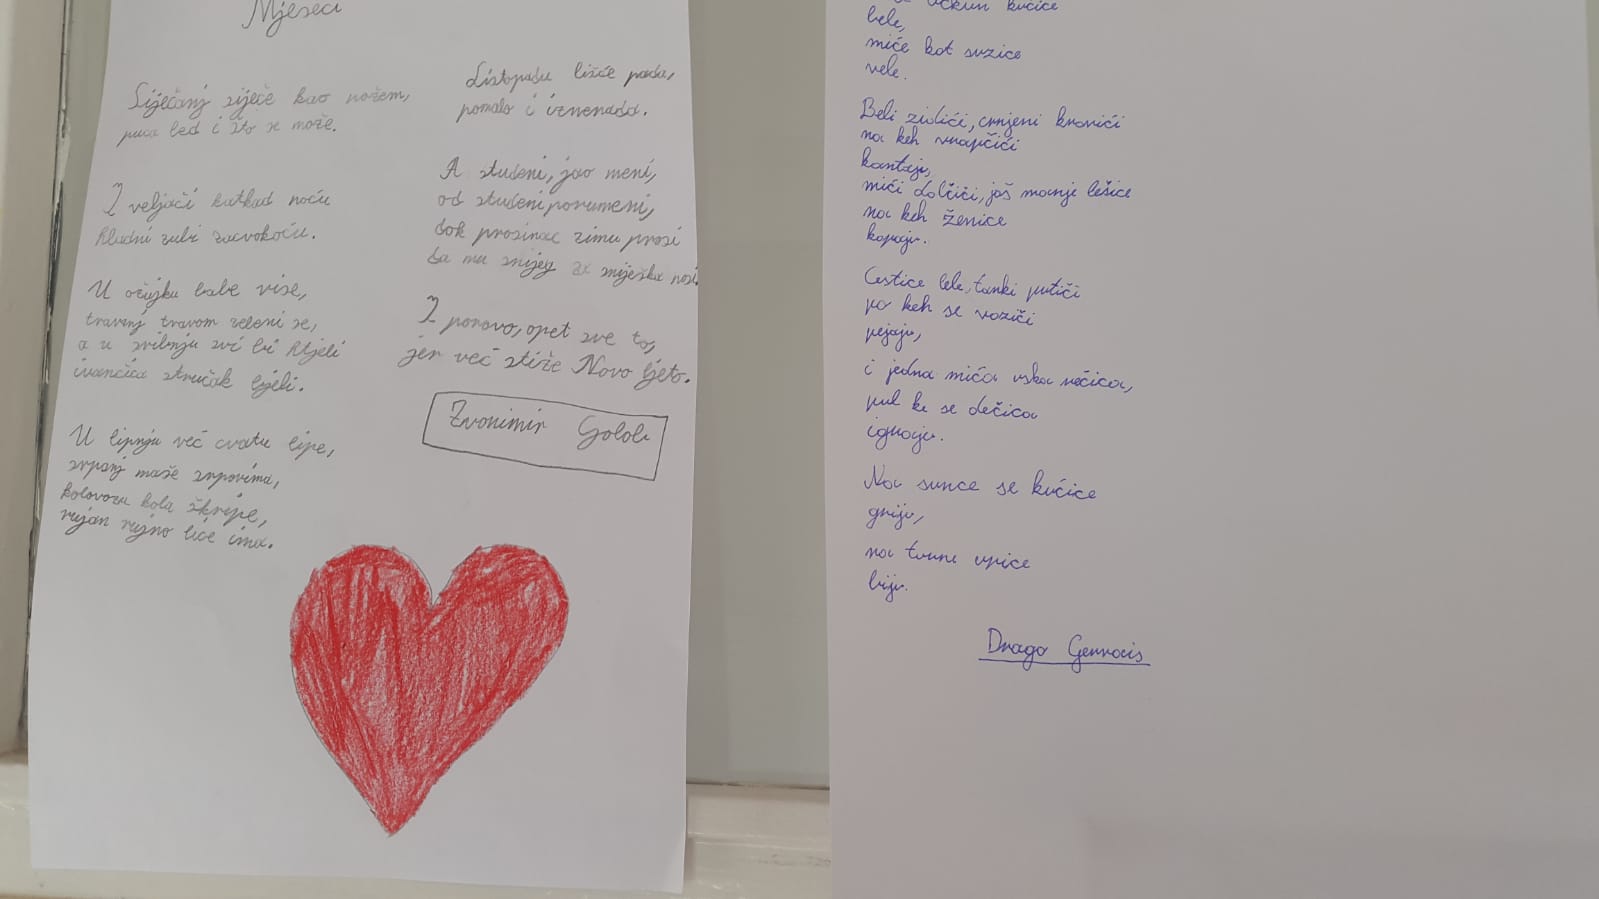 Mjeseci
Siječanj siječe kao nožem,
puca led i što se može.
I veljači katkad noću
hladni zubi zacvokoću.
U ožujku babe vise,
travanj travom zeleni se,
a u svibnju svi bi htjeli
ivančica stručak bijeli.
U lipnju već cvatu lipe,
srpanj maše srpovima,
kolovozu kola škripe,
rujan rujno lice ima.
Listopadu lišće pada,
pomalo i iznenada.
A studeni, jao meni,
od studeni porumeni,
dok prosinac zimu prosi
da mu snijeg za smiješka nosi.
I ponovo, opet sve to,
jer već stiže Novo ljeto.
Zvonimir Golob
kućice
bele,
miće kot suzice
vele.
Beli zidići, crnjeni krovići
na keh vrapčići
kantaju,
mići dolčići, još manje lešice
na keh ženice
kopaju.
Cestice bele, tanki putići
po keh se vozići
pejaju,
i jedna mića uska ućica,
pul ke se dečica
igraju.
Na sunce se kućice
griju,
na turne urice
biju.
Drago Gervais